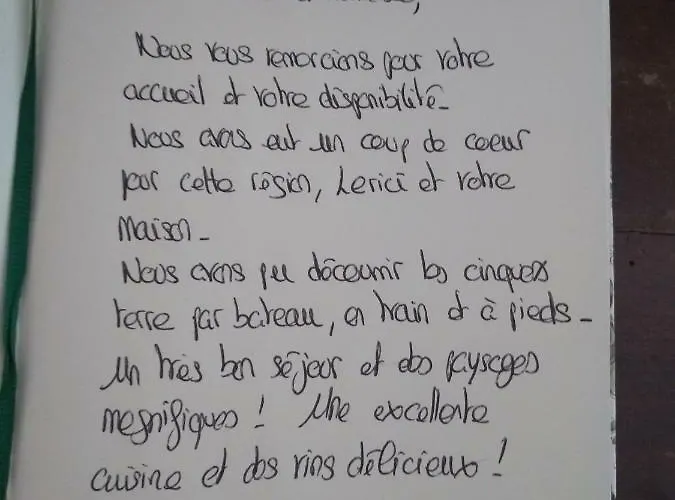 Nous vous remercions pour votre
accueil et votre disponibilité.
Nous avons eut un coup de coeur
pour cette région, Lerici et votre
maison.
Nous avons pu découvrir les cinques
terre par bateau, en train et à pieds.
Un très bon séjour et des paysages
magnifiques ! Une excellente
cuisine et des vins délicieux !